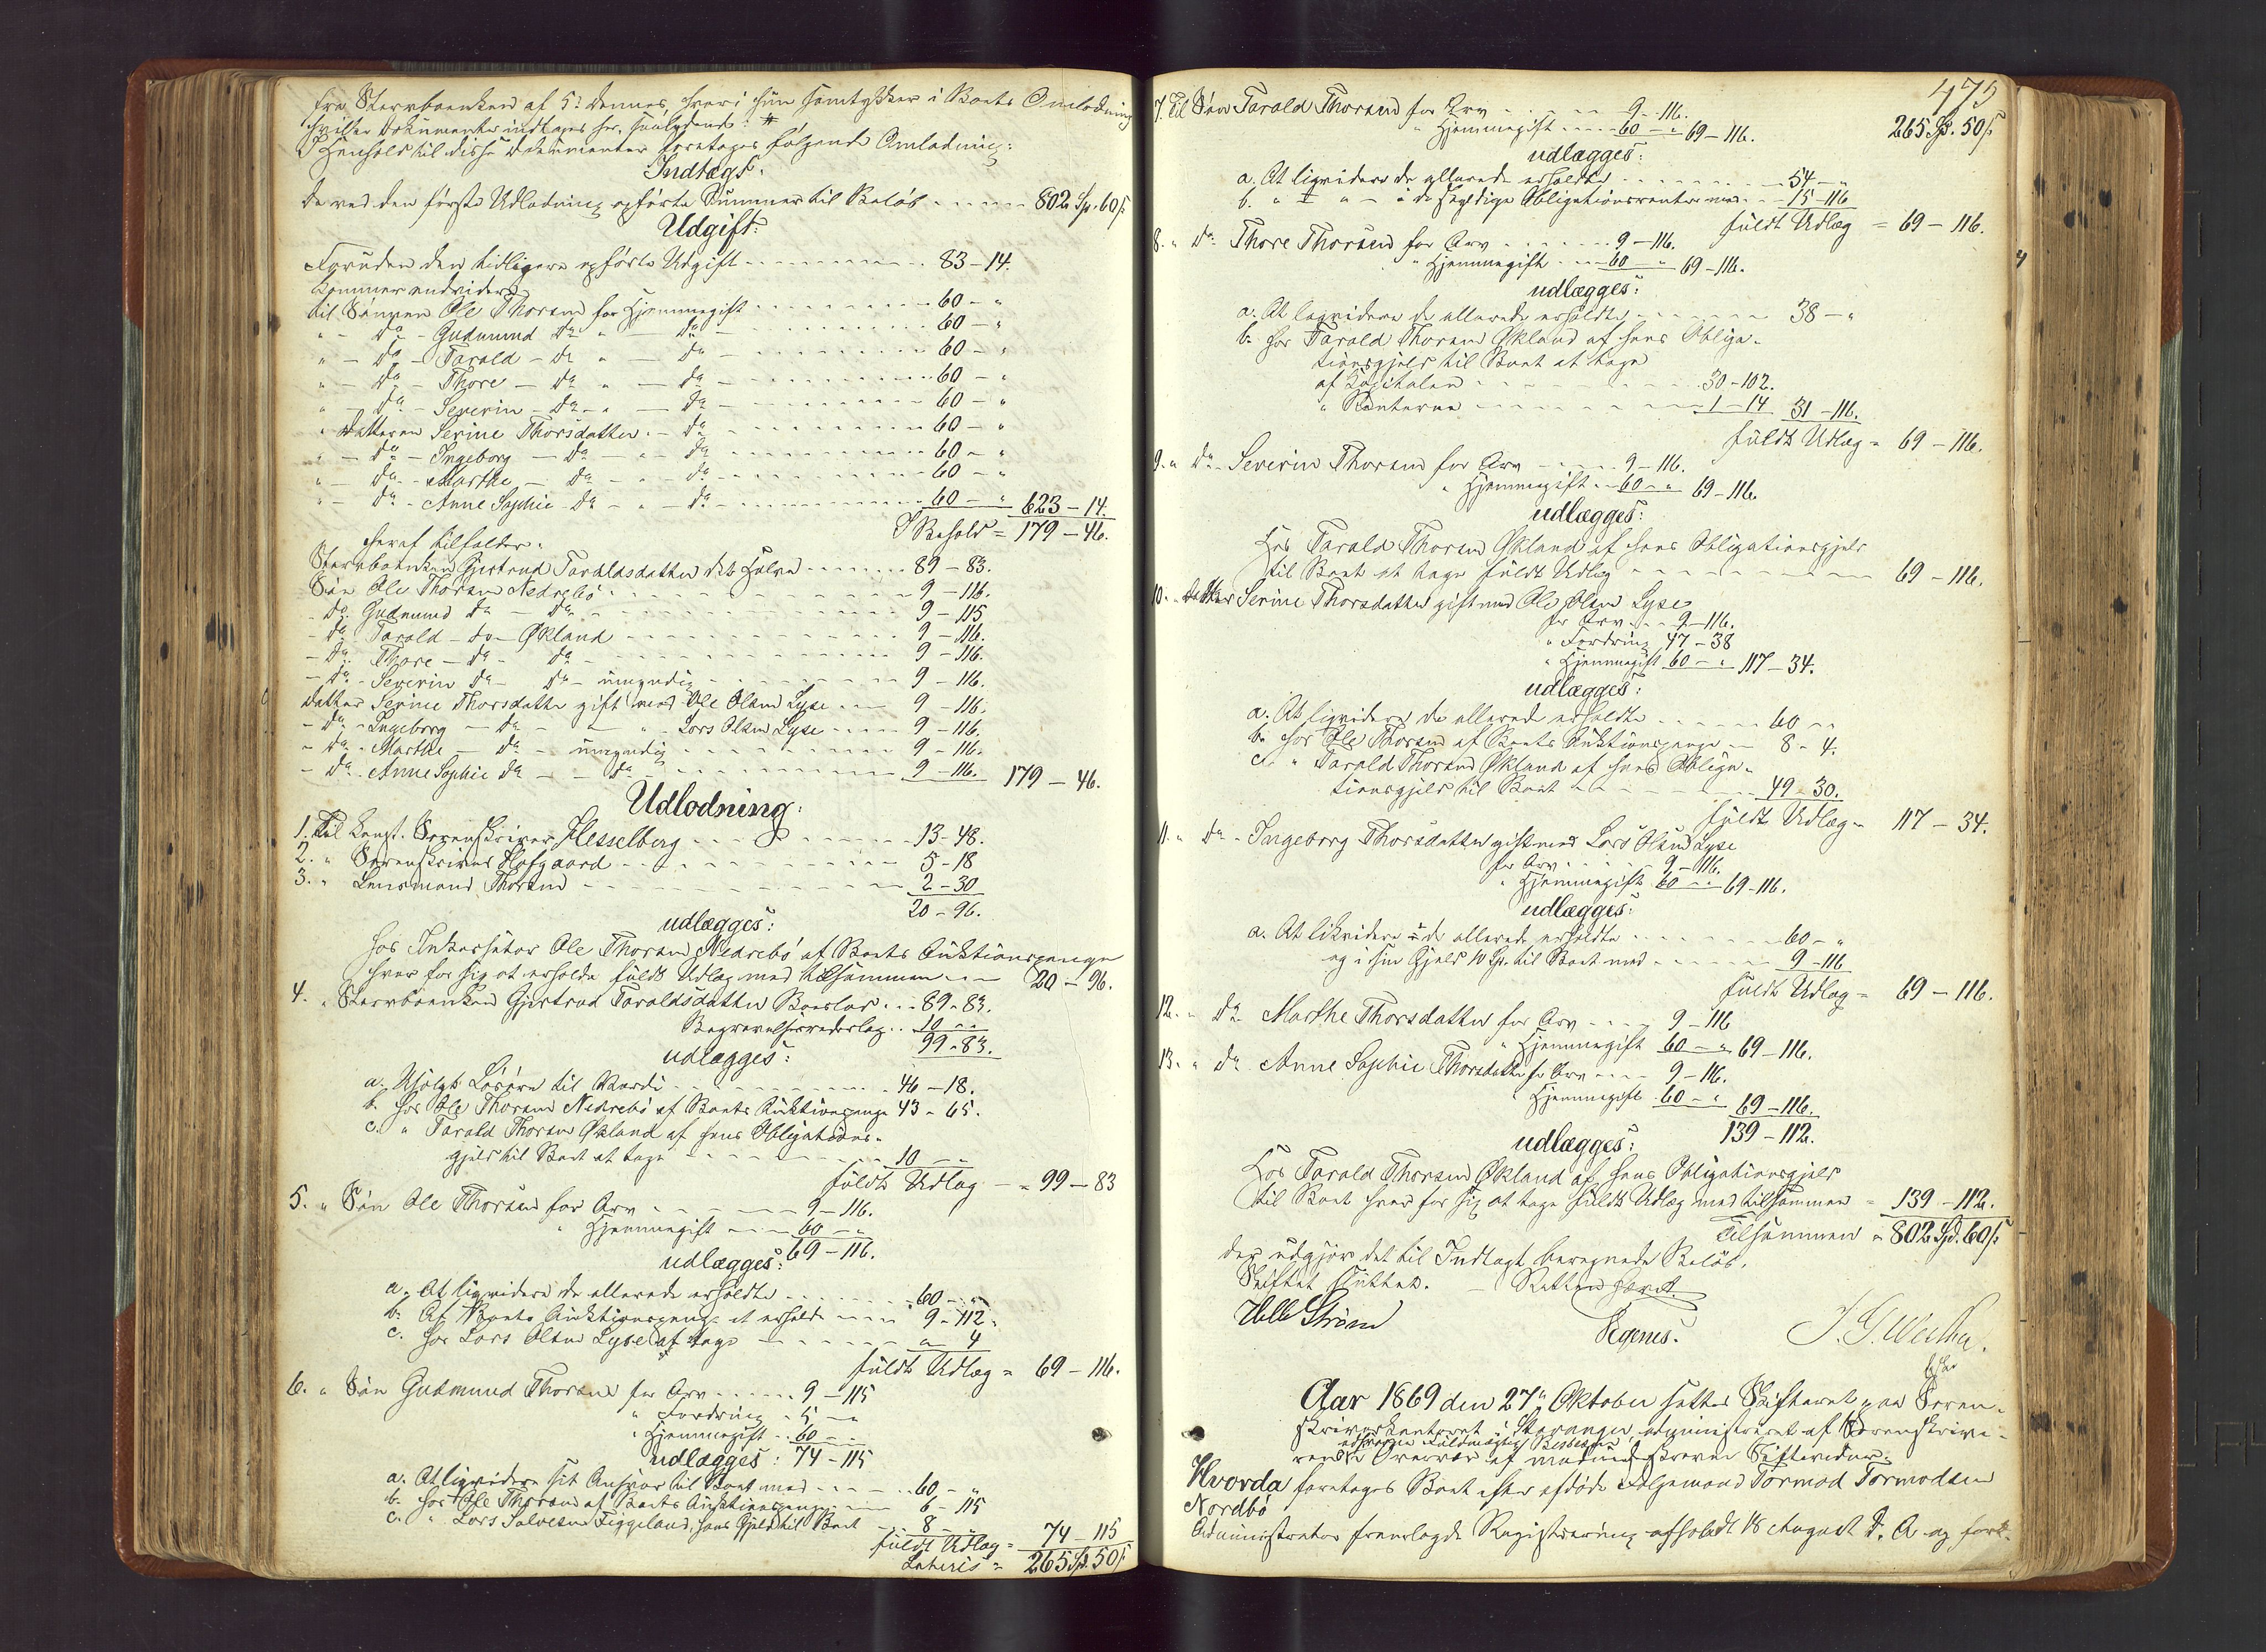 fra Stervboenken af 5: dennes, hvori hun samtykker i Boets Omlodning
hvilke Dokumenter indtages her, saalydende: #
I Henhold til disse Dokumenter foretages følgende Omlodning:
Indtægt.
De ved den første Udlodning opførte Summer til Beløb - - - 802 Sp. 60 s
Udgift:
Foruden den tidligere opførte Udgift - - - 83 - 14.
Kommer endvidere
til Sønnen Ole Thorsen for Hjemmegift - - - 60 - "
" - do - Gudmund do " do - - - 60 - "
" - do - Tarald - do " - do - - - 60 - "
" - do - Thore - do " - do - - - 60 - "
" - do - Severin - do - " - do - - - 60 - "
" Datteren Serine Thorsdatter - do - - - 60 - "
" - do - Ingeborg - do - " - do - - - 60 - "
" - do - Marthe - do - " do - - - 60 - "
" - do - Anne Sophie do - " - do - - - 60 - " 623 - 14.
I Behold = 179 - 46.
heraf tilfalder:
Stervboenken Gjertrud Taraldsdatter det halve - - - 89 - 83.
Søn Ole Thorsen Nedrebö - - - 9 - 116.
- do. Gudmund do do - - - 9 - 115
- do Tarald - do - Økland - - - 9 - 116.
- do. Thore - do - do - - - 9 - 116.
- do. - Severin do - do - umyndig - - - 9 - 116.
Datter Serine Thorsdatter gift med Ole Olsen Lyse - - - 9 - 116.
- do - Ingeborg - do - - " - Lars Olsen Lyse - - - 9 - 116.
- do - Marthe - do - umyndig - - - 9 - 116.
- do - Anne Sophie do - - do - - - 9 - 116. 179 - 46.
Udlodning:
1. Til const. Sorenskriver Hesselberg - - - 13 - 48.
2. " Sorenskriver Hofgaard - - - 5 - 18
3. " Lensmand Thorsen - - - 2 - 30
20 - 96.
udlægges:
hos Inkassator Ole Thorsen Nedrebö af Boets Auktionspenge
hver for sig at erholde fuldt Udlæg med tilsammen - - - 20 - 96.
4. " Stervboenken Gjertrud Taraldsdatter Boeslod - - 89 - 83.
Begravelsesvederlag - - 10 - "
99 - 83.
udlægges:
a. Usolgt Løsøre til Værdi - - - 46 - 18.
b. hos Ole Thorsen Nedrebö af Boets Auktionspenge 43 - 65.
c. " Tarald Thorsen Økland af hans Obligations-
gjeld til Boet at tage - - - 10 - "
fuldt Udlæg - = 99 - 83
5. " Søn Ole Thorsen for Arv - - - 9 - 116.
" Hjemmegift - - - 60 - "
69 - 116.
udlægges:
a. At liqvidere de allerede erholdte - - - 60 - "
b. Af Boets Auktionspenge at erholde - - - 9 - 112.
c. hos Lars Olsen Lyse at tage - - - " 4
fuldt Udlæg = 69 - 116.
6. " Søn Gudmund Thorsen for Arv - - - 9 - 115
" Fordring - 5 - "
" Hjemmegift - - 60 - "
udlægges: 74 - 115
a. At liqvidere sit Ansvar til Boet med - - - 60 - "
b. hos Ole Thorsen af Boets Auktionspenge - - - 6 - 115
c. " Lars Salvesen Tiggeland, hans Gjeld til Boet - - 8 - "
fuldt Udlæg = 74 - 115
Lateris = 265 Sp. 50 s
475
7. Til Søn Tarald Thorsen for Arv - - - 9 - 116. 265 Sp. 50 s
" Hjemmegift - - - 60 - " 69 - 116.
udlægges:
a. At liqvidere de allerede erholdte - - - 54 - "
b. " " - i de skyldige Obligationsrenter med - - 15 - 116
fuldt Udlæg = 69 - 116.
8. " do. Thore Thorsen for Arv - - - 9 - 116.
" Hjemmegift - - - 60 - " 69 - 116.
udlægges:
a. At liqvidere de allerede erholdte - - - 38 - "
b. hos Tarald Thorsen Økland af hans Obliga-
tionsgjeld til Boet at tage
af Kapitalen - - - 30 - 102.
" Renterne - - - 1 - 14 31 - 116.
fuldt Udlæg = 69 - 116.
9. " do - Severin Thorsen for Arv - - - 9 - 116.
" Hjemmegift - - 60 - " 69 - 116.
udlægges:
Hos Tarald Thorsen Økland af hans Obligationsgjeld
til Boet at tage fuldt Udlæg - - - 69 - 116.
10. " Datter Serine Thorsdatter gift med Ole Olsen Lyse
for Arv - - - 9 - 116.
" Fordring 47 - 38
" Hjemmegift 60 - " 117 - 34.
udlægges:
a. At liqvidere de allerede erholdte - - - 60 - "
b. hos Ole Thorsen af Boets Auktionspenge - - 8 - 4.
c. " Tarald Thorsen Økland af hans Obliga-
tionsgjeld til Boet - - - 49 - 30.
fuldt Udlæg = 117 - 34.
11. " do - Ingeborg Thorsdatter gift med Lars Olsen Lyse
for Arv - - - 9 - 116.
" Hjemmegift 60 - " 69 - 116.
udlægges:
a. At likvidere de allerede erholdte - - - 60 - "
og i sin Gjeld 10 Sp. til Boet med - - - 9 - 116
fuldt Udlæg = 69 - 116.
12. " do Marthe Thorsdatter for Arv - - - 9 - 116
" Hjemmegift 60 - " 69 - 116.
13. " do Anne Sophie Thorsdatter for Arv - - - 9 - 116.
" Hjemmegift 60 - " 69 - 116.
139 - 112.
udlægges:
Hos Tarald Thorsen Økland af hans Obligationsgjeld
til Boet hver for sig at tage fuldt Udlæg med tilsammen = 139 - 112.
Tilsammen = 802 Spd. 60 s
der udgjør det til Indtægt beregnede Beløb.
Skiftet sluttet. - Retten hævet.
Helle Strøm Segenes.
Aar 1869 den 27" Oktober sattes Skifteret paa Soren-
skriverkontoret i Stavanger, administreret af Sorenskrive-
ren
edsvorne Fuldmægtig
i Overvær af medunderskrevne Skiftevidner:
Hvorda foretoges Boet efter afdøde Følgemand Tormod Tormodsen
Nordbö
Administrator fremlagde Registrering afholdt 18 August d. A. og fort-